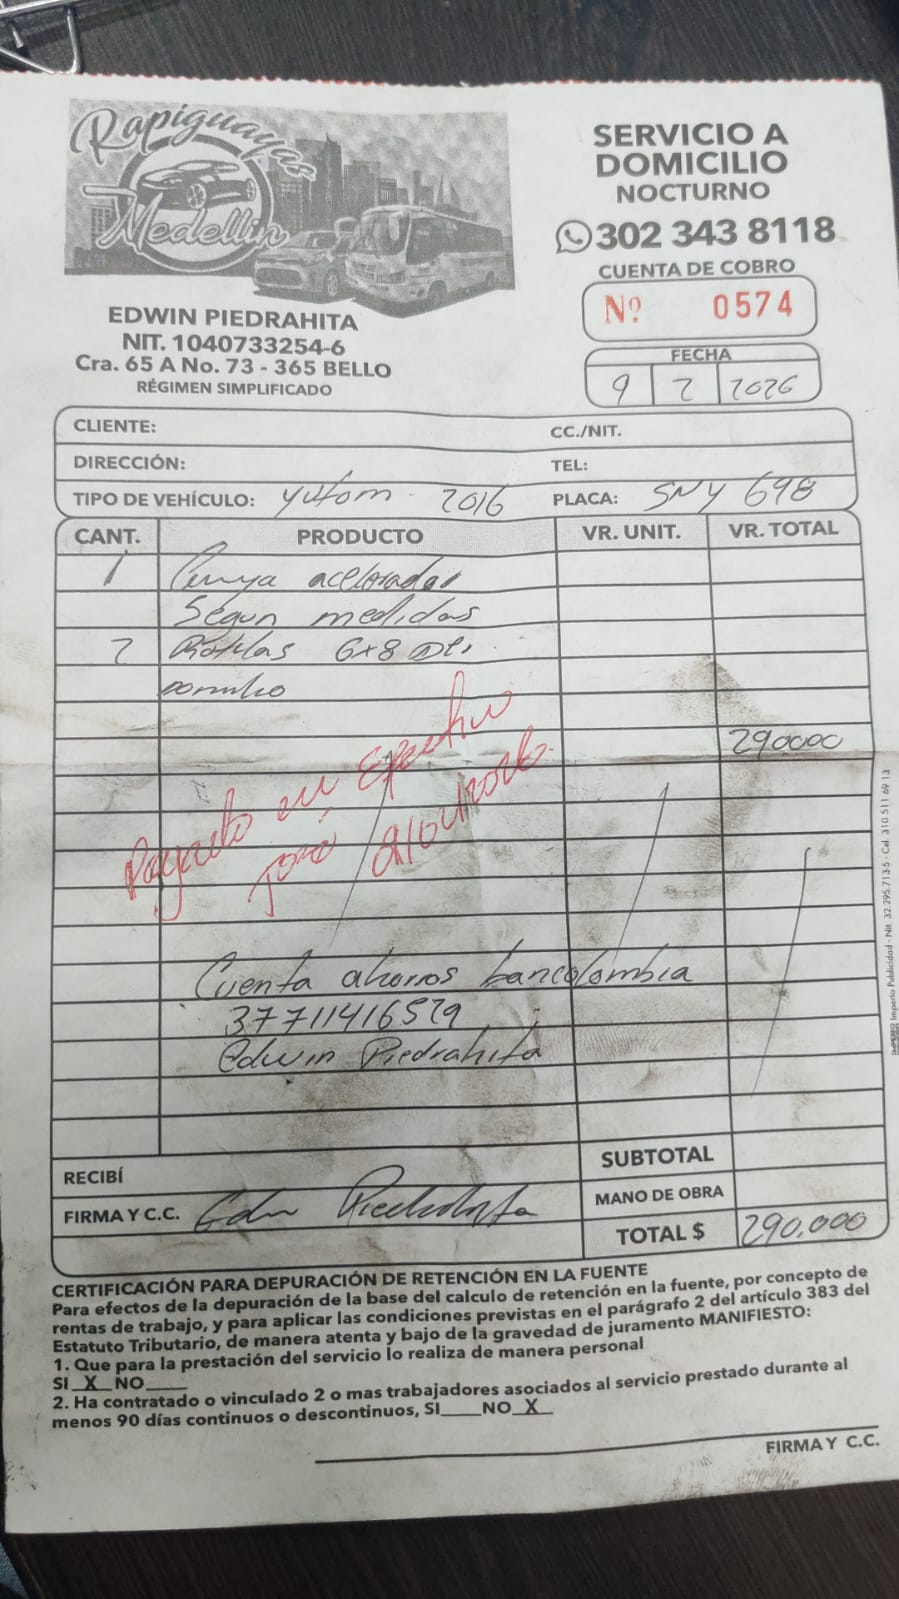 Rapiguayas
Medellin
SERVICIO A
DOMICILIO
NOCTURNO
302 343 8118
CUENTA DE COBRO
Nº 0574
EDWIN PIEDRAHITA
NIT. 1040733254-6
Cra. 65 A No. 73 - 365 BELLO
RÉGIMEN SIMPLIFICADO
FECHA
9 2 2026
CLIENTE: CC./NIT.
DIRECCIÓN: TEL:
TIPO DE VEHÍCULO: yutom 2016 PLACA: SNY 698
CANT. PRODUCTO VR. UNIT. VR. TOTAL
1 Guaya acelerador
Segun medidas
2 Rotulas 6x8
290000
Pagado en Efectivo
Cuenta ahorros bancolombia
37711416529
Edwin Piedrahita
RECIBÍ
FIRMA Y C.C. Edwin Piedrahita
SUBTOTAL
MANO DE OBRA
TOTAL $ 290,000
CERTIFICACIÓN PARA DEPURACIÓN DE RETENCIÓN EN LA FUENTE
Para efectos de la depuración de la base del calculo de retención en la fuente, por concepto de
rentas de trabajo, y para aplicar las condiciones previstas en el parágrafo 2 del artículo 383 del
Estatuto Tributario, de manera atenta y bajo de la gravedad de juramento MANIFIESTO:
1. Que para la prestación del servicio lo realiza de manera personal
SI X NO
2. Ha contratado o vinculado 2 o mas trabajadores asociados al servicio prestado durante al
menos 90 días continuos o descontinuos, SI NO X
FIRMA Y C.C.
Imperio Publicidad - Nit. 32.295.713-5 - Cel. 310 511 69 13